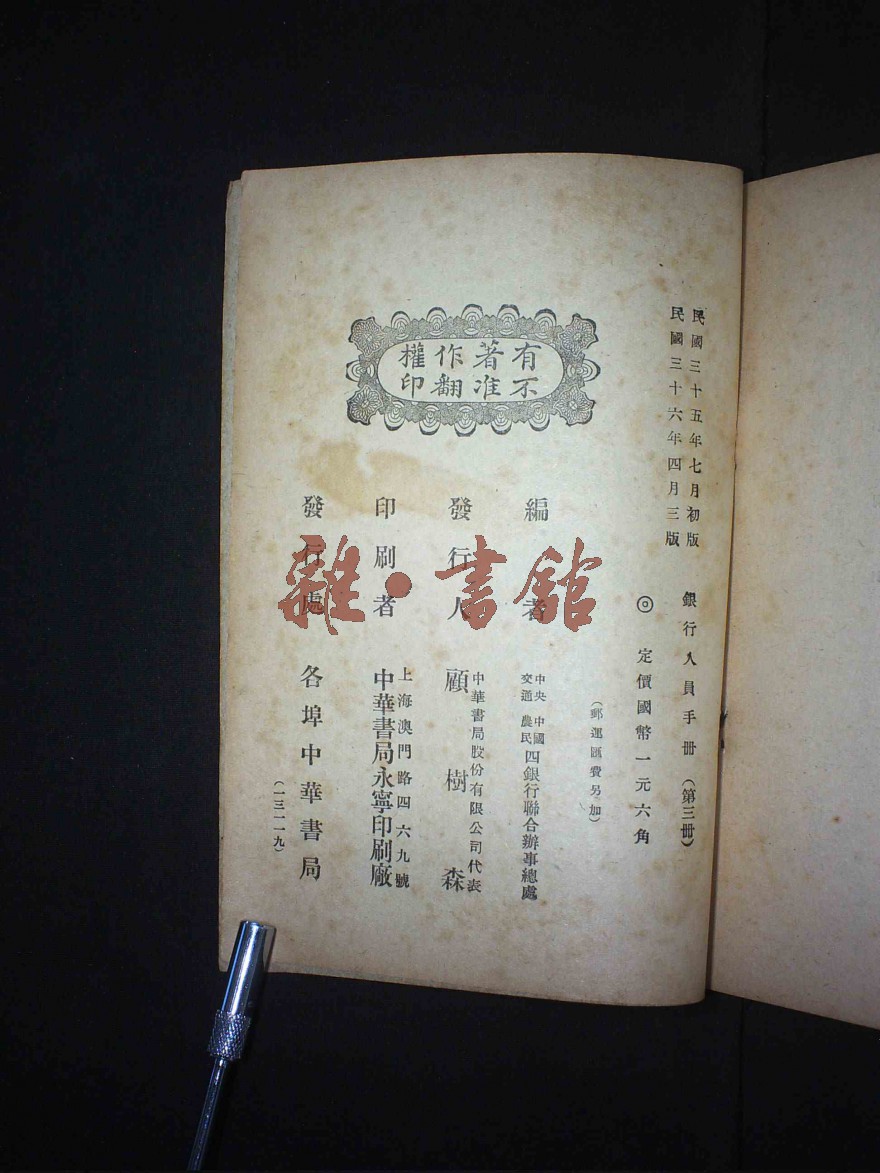 民國三十五年七月初版
民國三十六年四月三版
銀行人員手册（第三册）
◎ 定價國幣一元六角
（郵運匯費另加）
有著作權
不准翻印
編者 中央 中國 交通 農民 四銀行聯合辦事總處
發行人 中華書局股份有限公司代表
顧樹森
印刷者 上海澳門路四六九號
中華書局永寧印刷廠
發行處 各埠中華書局
（一三一一九）
雜·書館